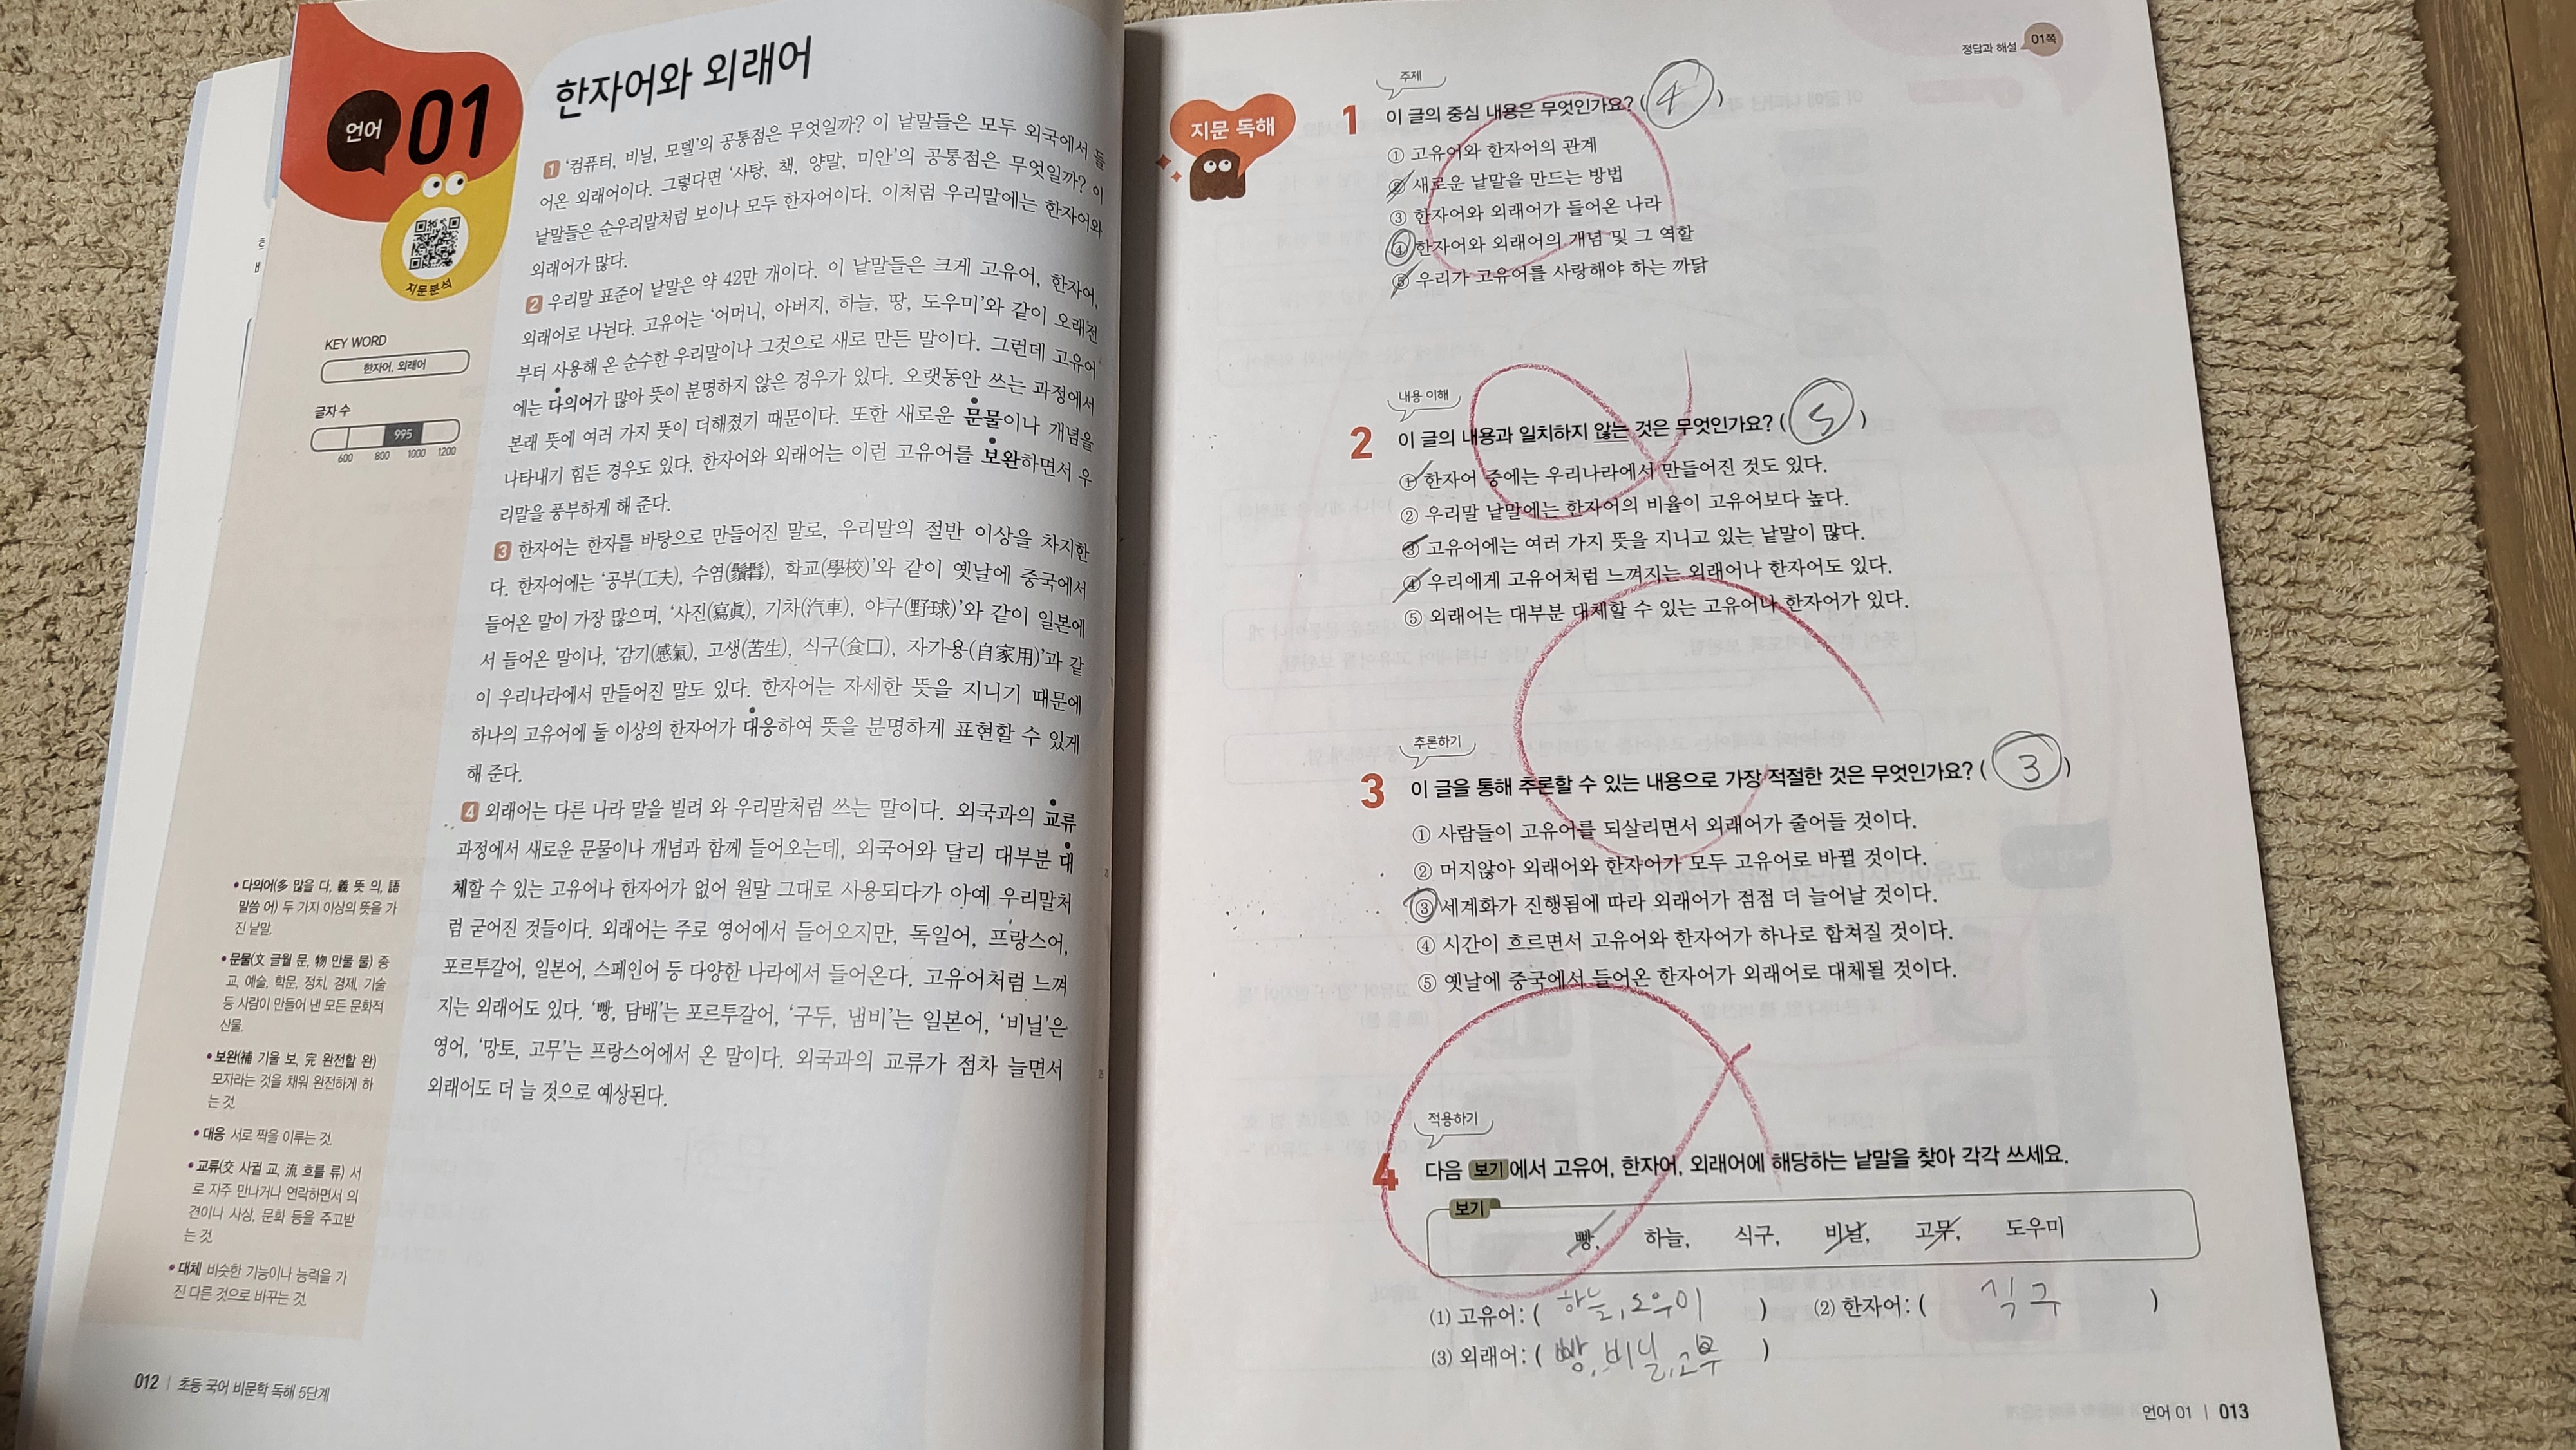 언어
01
지문분석
KEY WORD
한자어, 외래어
글자 수
995
600 800 1000 1200
한자어와 외래어
1 '컴퓨터, 비닐, 모델'의 공통점은 무엇일까? 이 낱말들은 모두 외국에서 들
어온 외래어이다. 그렇다면 '사탕, 책, 양말, 미안'의 공통점은 무엇일까? 이
낱말들은 순우리말처럼 보이나 모두 한자어이다. 이처럼 우리말에는 한자어와
외래어가 많다.
2 우리말 표준어 낱말은 약 42만 개이다. 이 낱말들은 크게 고유어, 한자어,
외래어로 나뉜다. 고유어는 '어머니, 아버지, 하늘, 땅, 도우미'와 같이 오래전
부터 사용해 온 순수한 우리말이나 그것으로 새로 만든 말이다. 그런데 고유어
에는 다의어가 많아 뜻이 분명하지 않은 경우가 있다. 오랫동안 쓰는 과정에서
본래 뜻에 여러 가지 뜻이 더해졌기 때문이다. 또한 새로운 문물이나 개념을
나타내기 힘든 경우도 있다. 한자어와 외래어는 이런 고유어를 보완하면서 우
리말을 풍부하게 해 준다.
3 한자어는 한자를 바탕으로 만들어진 말로, 우리말의 절반 이상을 차지한
다. 한자어에는 '공부(工夫), 수염(鬚髥), 학교(學校)'와 같이 옛날에 중국에서
들어온 말이 가장 많으며, '사진(寫眞), 기차(汽車), 야구(野球)'와 같이 일본에
서 들어온 말이나, '감기(感氣), 고생(苦生), 식구(食口), 자가용(自家用)'과 같
이 우리나라에서 만들어진 말도 있다. 한자어는 자세한 뜻을 지니기 때문에
하나의 고유어에 둘 이상의 한자어가 대응하여 뜻을 분명하게 표현할 수 있게
해 준다.
4 외래어는 다른 나라 말을 빌려 와 우리말처럼 쓰는 말이다. 외국과의 교류
과정에서 새로운 문물이나 개념과 함께 들어오는데, 외국어와 달리 대부분 대
체할 수 있는 고유어나 한자어가 없어 원말 그대로 사용되다가 아예 우리말처
럼 굳어진 것들이다. 외래어는 주로 영어에서 들어오지만, 독일어, 프랑스어,
포르투갈어, 일본어, 스페인어 등 다양한 나라에서 들어온다. 고유어처럼 느껴
지는 외래어도 있다. '빵, 담배'는 포르투갈어, '구두, 냄비'는 일본어, '비닐'은
영어, '망토, 고무'는 프랑스어에서 온 말이다. 외국과의 교류가 점차 늘면서
외래어도 더 늘 것으로 예상된다.
• 다의어(多 많을 다, 義 뜻 의, 語
말씀 어) 두 가지 이상의 뜻을 가
진 낱말.
• 문물(文 글월 문, 物 만물 물) 종
교, 예술, 학문, 정치, 경제, 기술
등 사람이 만들어 낸 모든 문화적
산물.
• 보완(補 기울 보, 完 완전할 완)
모자라는 것을 채워 완전하게 하
는 것.
• 대응 서로 짝을 이루는 것.
• 교류(交 사귈 교, 流 흐를 류) 서
로 자주 만나거나 연락하면서 의
견이나 사상, 문화 등을 주고받
는 것.
• 대체 비슷한 기능이나 능력을 가
진 다른 것으로 바꾸는 것.
012 | 초등 국어 비문학 독해 5단계
정답과 해설 01쪽
지문 독해
주제
1 이 글의 중심 내용은 무엇인가요? ( 4 )
① 고유어와 한자어의 관계
② 새로운 낱말을 만드는 방법
③ 한자어와 외래어가 들어온 나라
④ 한자어와 외래어의 개념 및 그 역할
⑤ 우리가 고유어를 사랑해야 하는 까닭
내용 이해
2 이 글의 내용과 일치하지 않는 것은 무엇인가요? ( 5 )
① 한자어 중에는 우리나라에서 만들어진 것도 있다.
② 우리말 낱말에는 한자어의 비율이 고유어보다 높다.
③ 고유어에는 여러 가지 뜻을 지니고 있는 낱말이 많다.
④ 우리에게 고유어처럼 느껴지는 외래어나 한자어도 있다.
⑤ 외래어는 대부분 대체할 수 있는 고유어나 한자어가 있다.
추론하기
3 이 글을 통해 추론할 수 있는 내용으로 가장 적절한 것은 무엇인가요? ( 3 )
① 사람들이 고유어를 되살리면서 외래어가 줄어들 것이다.
② 머지않아 외래어와 한자어가 모두 고유어로 바뀔 것이다.
③ 세계화가 진행됨에 따라 외래어가 점점 더 늘어날 것이다.
④ 시간이 흐르면서 고유어와 한자어가 하나로 합쳐질 것이다.
⑤ 옛날에 중국에서 들어온 한자어가 외래어로 대체될 것이다.
적용하기
4 다음 보기에서 고유어, 한자어, 외래어에 해당하는 낱말을 찾아 각각 쓰세요.
보기
빵, 하늘, 식구, 비닐, 고무, 도우미
(1) 고유어: ( 하늘, 도우미 ) (2) 한자어: ( 식구 )
(3) 외래어: ( 빵, 비닐, 고무 )
언어 01 | 013